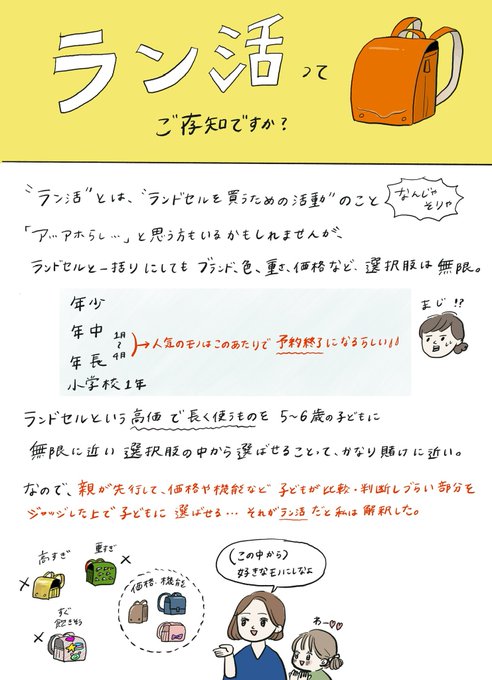 ラン活って
ご存知ですか?
"ラン活"とは、"ランドセルを買うための活動"のこと
なんじゃ
そりゃ
「ア…アホらし…」と思う方もいるかもしれませんが、
ランドセルと一括りにしても ブランド、色、重さ、価格など、選択肢は無限。
年少
年中 1月
〜
年長 4月
→人気のモノはこのあたりで 予約終了になるらしい!!
小学校1年
まじ!?
ランドセルという 高価で長く使うものを 5〜6歳の子どもに
無限に近い 選択肢の中から 選ばせることって、かなり賭けに近い。
なので、親が先行して、価格や機能など 子どもが比較・判断しづらい部分を
ジャッジした上で子どもに 選ばせる… それがラン活 だと私は解釈した。
高すぎ
重すぎ
すぐ
飽きそう
価格、機能
(この中から)
好きなモノにしなよ
わー♡♡